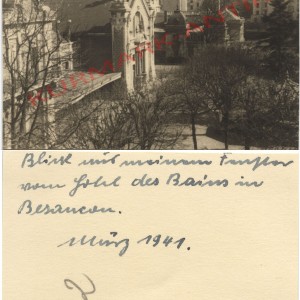 Blick aus meinem Fenster
vom Hotel des Bains in
Besancon.
März 1941.
2